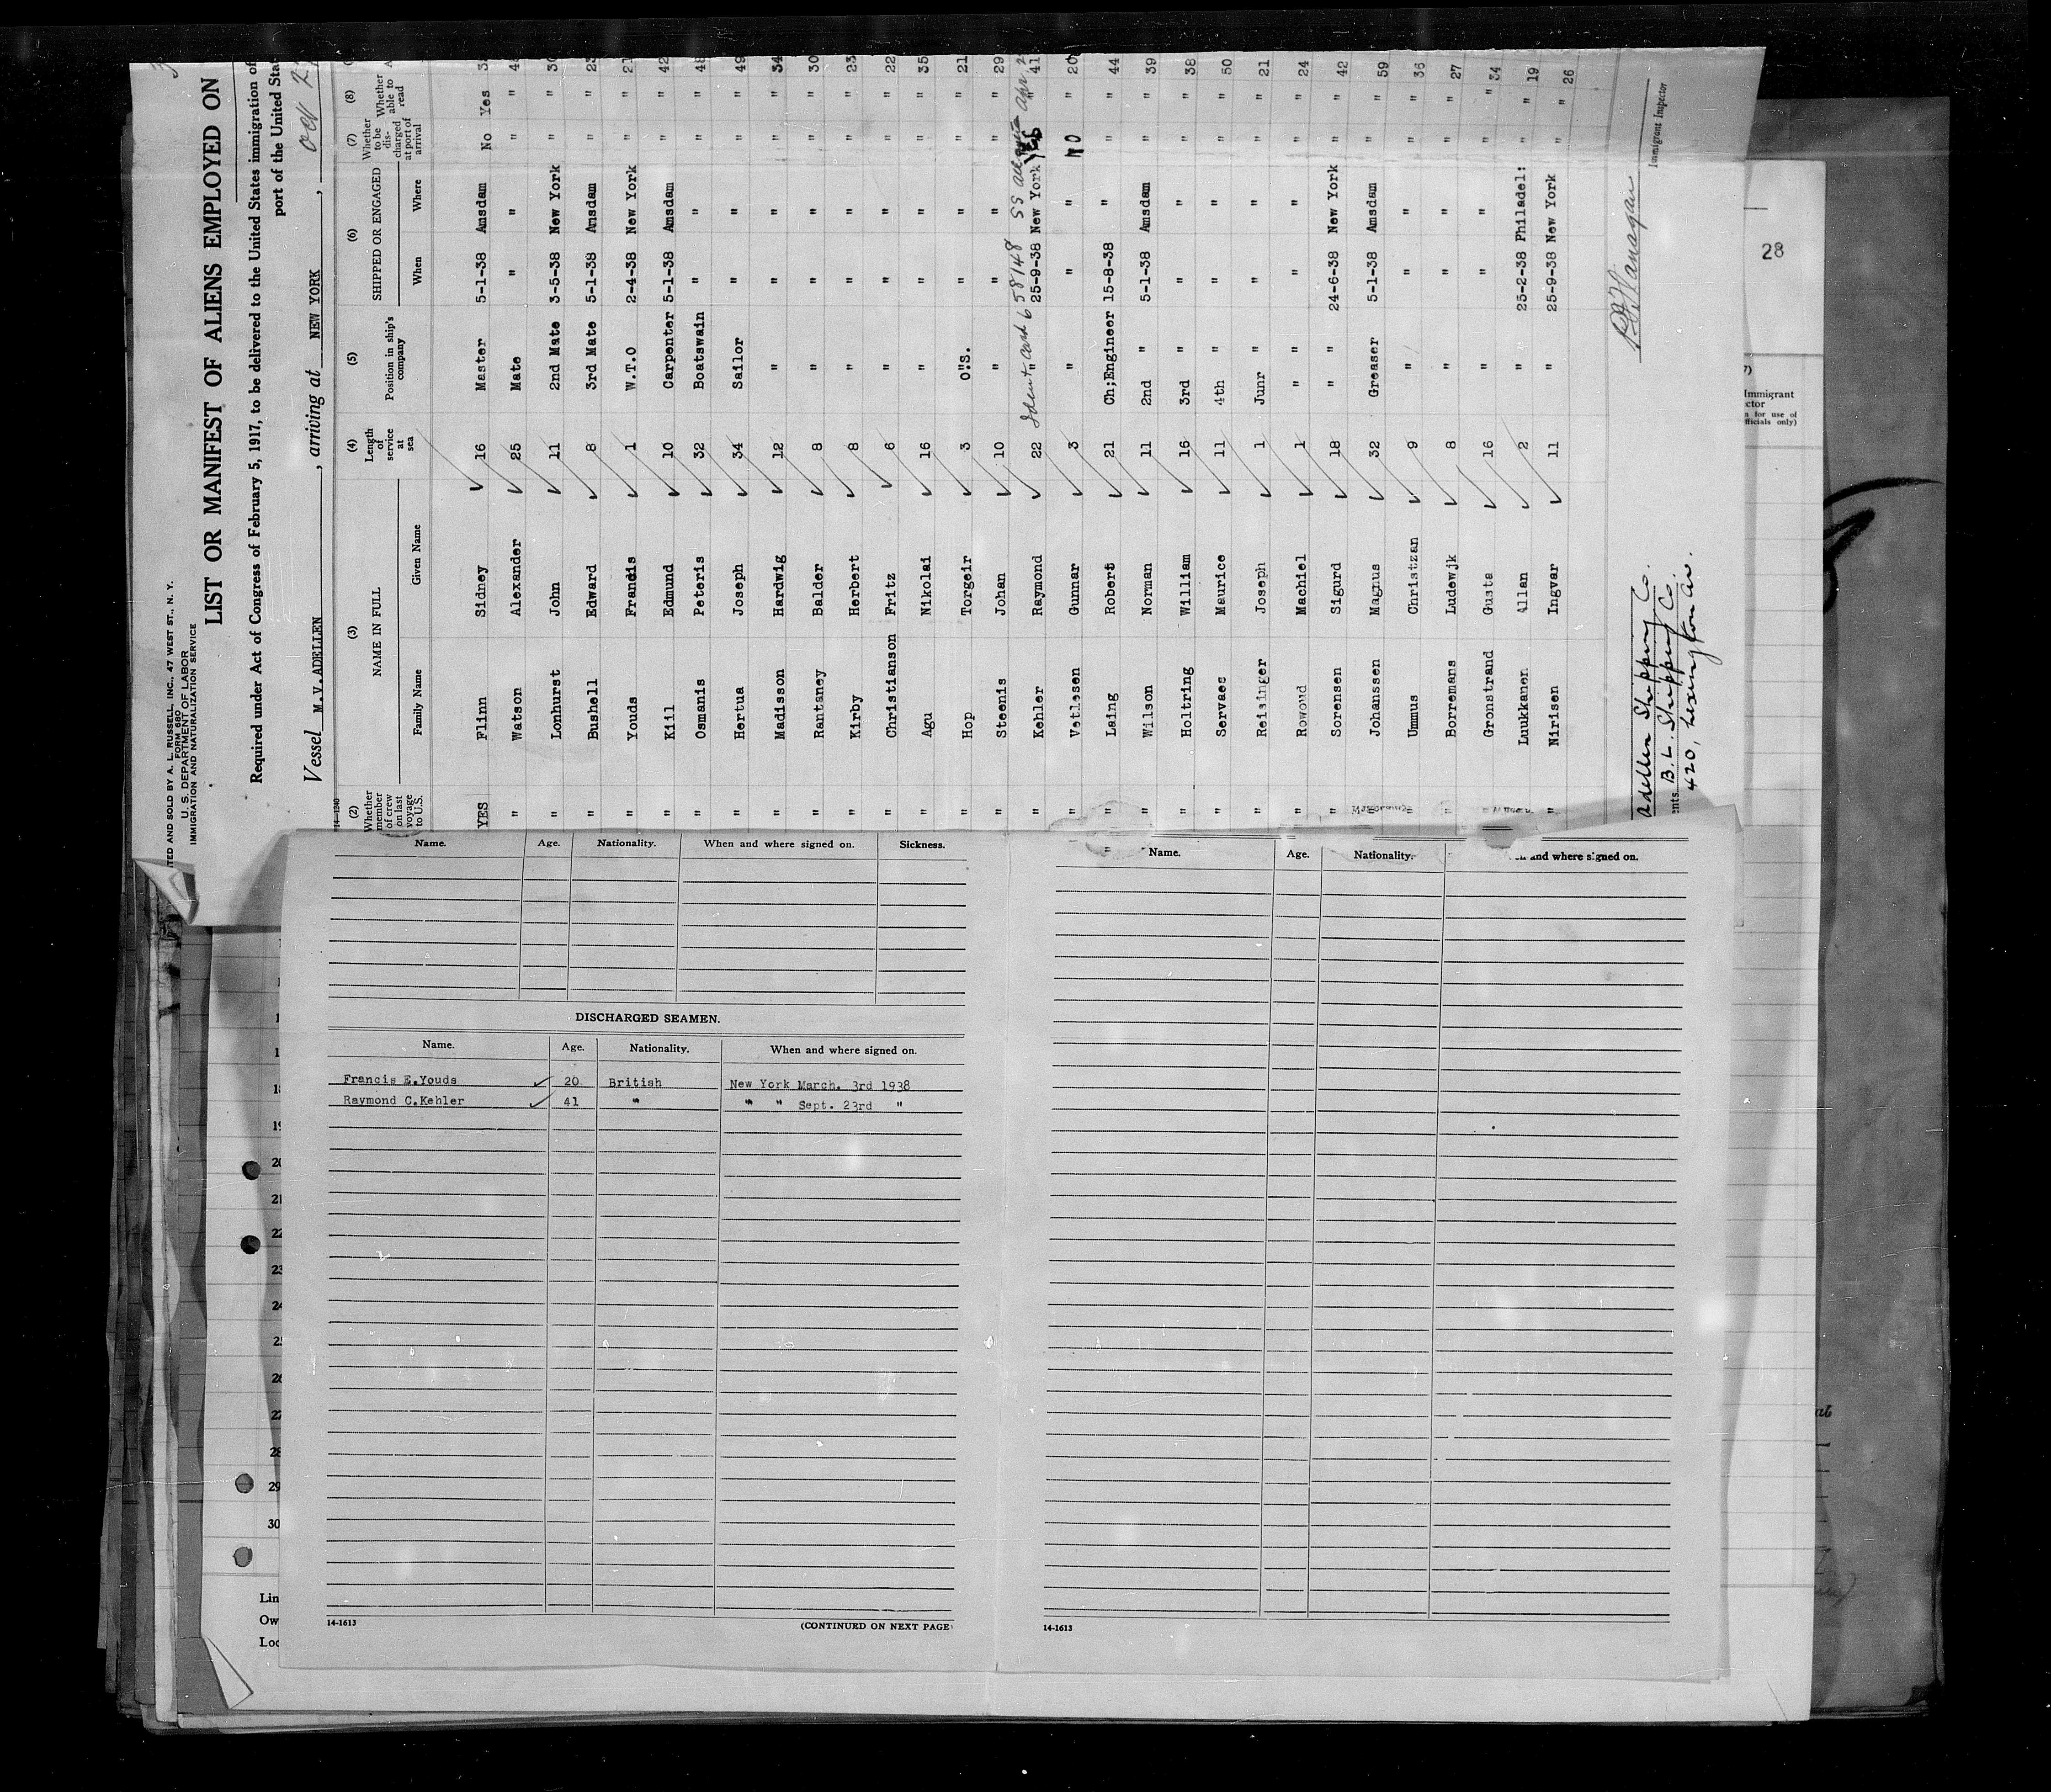 PRINTED AND SOLD BY A. L. RUSSELL, INC., 47 WEST ST., N. Y.
FORM 680
U. S. DEPARTMENT OF LABOR
IMMIGRATION AND NATURALIZATION SERVICE
LIST OR MANIFEST OF ALIENS EMPLOYED ON
Required under Act of Congress of February 5, 1917, to be delivered to the United States immigration of
port of the United Sta
Vessel M.V.ADELLEN, arriving at NEW YORK, Oct 2
14-1240
(2) Whether member of crew on last voyage to U.S. (3) NAME IN FULL Family Name Given Name (4) Length of service at sea (5) Position in ship's company (6) SHIPPED OR ENGAGED When Where (7) Whether to be discharged at port of arrival (8) Whether able to read
YES Flinn Sidney 16 Master 5-1-38 Amsdam No Yes 3
" Watson Alexander 25 Mate " " " " 4
" Lonhurst John 11 2nd Mate 3-5-38 New York " " 30
" Bushell Edward 8 3rd Mate 5-1-38 Amsdam " " 23
" Youds Francis 1 W.T.O 2-4-38 New York " " 21
" Kiil Edmund 10 Carpenter 5-1-38 Amsdam " " 42
" Osmanis Peteris 32 Boatswain " " " " 48
" Hertua Joseph 34 Sailor " " " " 49
" Madisson Hardwig 12 " " " " " 34
" Rantaney Balder 8 " " " " " 30
" Kirby Herbert 8 " " " " " 23
" Christianson Fritz 6 " " " " " 22
" Agu Nikolai 16 " " " " " 35
" Hop Torgeir 3 O"S. " " " " 21
" Steenis Johan 10 " " " " " 29
Ident card 6 58148 SS
" Kehler Raymond 22 " 25-9-38 New York Yes " 41
" Vetlesen Gunnar 3 " " " NO " 20
" Laing Robert 21 Ch;Engineer 15-8-38 " " " 44
" Wilson Norman 11 2nd " 5-1-38 Amsdam " " 39
" Holtring William 16 3rd " " " " " 38
" Servaes Maurice 11 4th " " " " " 50
" Reisinger Joseph 1 Junr " " " " " 21
" Rowoud Machiel 1 " " " " " " 24
" Sorensen Sigurd 18 " " 24-6-38 New York " " 42
" Johanssen Magnus 32 Greaser 5-1-38 Amsdam " " 59
Ummus Christzan 9 " " " " " 36
" Borremans Ludewjk 8 " " " " " 27
Gronstrand Gusta 16 " " " " " 34
" Luukkanon Allan 2 " 25-2-38 Philadel: " " 19
" Nirisen Ingvar 11 " 25-9-38 New York " " 26
Immigrant Inspector
Adellen Shipping Co.
B. L. Shipping Co.
420, Lexington Av.
28
Immigrant
ctor
n for use of
fficials only)
Name. Age. Nationality. When and where signed on. Sickness.
DISCHARGED SEAMEN.
Name. Age. Nationality. When and where signed on.
Francis E.Youds 20 British New York March. 3rd 1938
Raymond C.Kehler 41 " " " Sept. 23rd "
14-1613 (CONTINUED ON NEXT PAGE)
Name. Age. Nationality. and where signed on.
14-1613
19
20
21
22
23
24
25
26
27
28
29
30
Lin
Ow
Loc